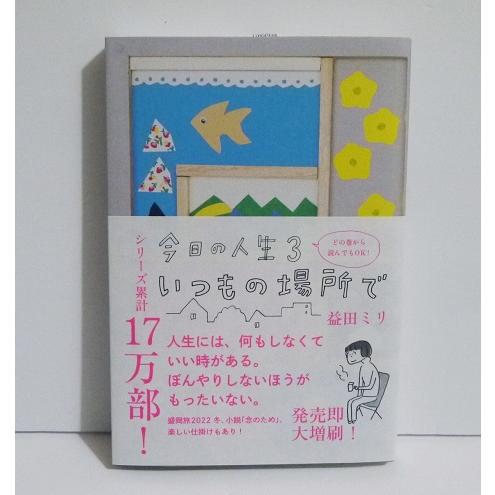 今日の人生3
いつもの場所で
どの巻から
読んでもOK!
益田ミリ
シリーズ累計
17万部!
人生には、何もしなくて
いい時がある。
ぼんやりしないほうが
もったいない。
盛岡旅2022冬、小説「念のため」、
楽しい仕掛けもあり!
発売即
大増刷!